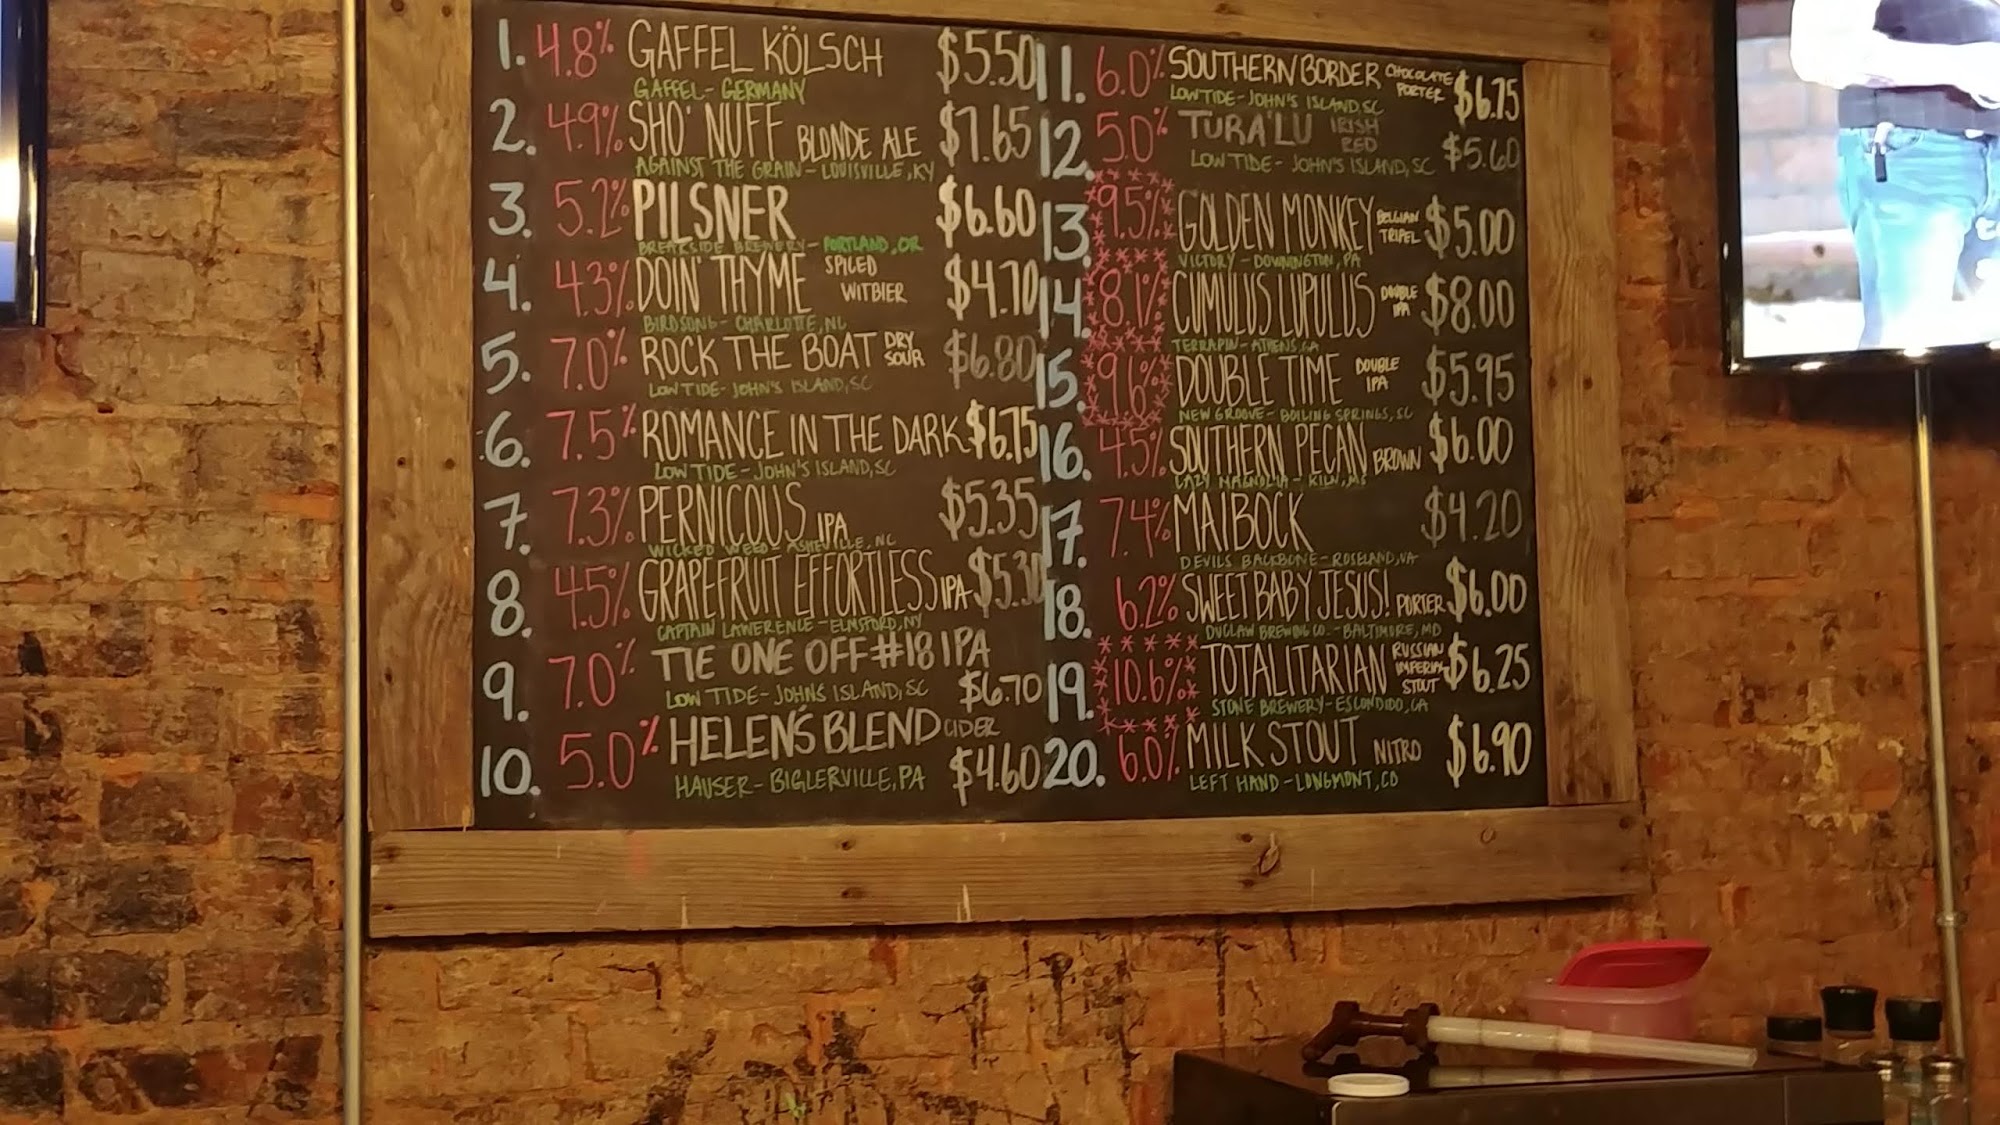 1. 4.8% GAFFEL KÖLSCH $5.50
GAFFEL - GERMANY
2. 4.9% SHO' NUFF BLONDE ALE $7.65
AGAINST THE GRAIN - LOUISVILLE, KY
3. 5.2% PILSNER $6.60
BREAKSIDE BREWERY - PORTLAND, OR
4. 4.3% DOIN' THYME SPICED WITBIER $4.70
BIRDSONG - CHARLOTTE, NC
5. 7.0% ROCK THE BOAT DRY SOUR $6.80
LOW TIDE - JOHN'S ISLAND, SC
6. 7.5% ROMANCE IN THE DARK $6.75
LOW TIDE - JOHN'S ISLAND, SC
7. 7.3% PERNICOUS IPA $5.35
WICKED WEED - ASHEVILLE, NC
8. 4.5% GRAPEFRUIT EFFORTLESS IPA $5.30
CAPTAIN LAWERENCE - ELMSFORD, NY
9. 7.0% TIE ONE OFF #18 IPA $6.70
LOW TIDE - JOHN'S ISLAND, SC
10. 5.0% HELEN'S BLEND CIDER $4.60
HAUSER - BIGLERVILLE, PA
11. 6.0% SOUTHERN BORDER CHOCOLATE PORTER $6.75
LOW TIDE - JOHN'S ISLAND, SC
12. 5.0% TURA'LU IRISH RED $5.60
LOW TIDE - JOHN'S ISLAND, SC
13. 9.5% GOLDEN MONKEY BELGIAN TRIPEL $5.00
VICTORY - DOWNINGTON, PA
14. 8.1% CUMULUS LUPULUS DOUBLE IPA $8.00
TERRAPIN - ATHENS, GA
15. 9.6% DOUBLE TIME DOUBLE IPA $5.95
NEW GROOVE - BOILING SPRINGS, SC
16. 4.5% SOUTHERN PECAN BROWN $6.00
LAZY MAGNOLIA - KILN, MS
17. 7.4% MAIBOCK $4.20
DEVILS BACKBONE - ROSELAND, VA
18. 6.2% SWEET BABY JESUS! PORTER $6.00
DUCLAW BREWING CO. - BALTIMORE, MD
19. 10.6% TOTALITARIAN RUSSIAN IMPERIAL STOUT $6.25
STONE BREWERY - ESCONDIDO, CA
20. 6.0% MILK STOUT NITRO $6.90
LEFT HAND - LONGMONT, CO